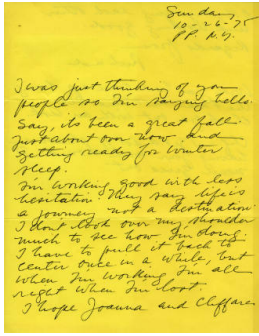 Sunday
10-26-75
PP. N.Y.
I was just thinking of you
people so I'm saying hello.
Say, it's been a great fall.
Just about over now and
getting ready for winter
sleep.
I'm working good with less
hesitation. They say life is
a journey not a destination.
I don't look over my shoulder
much to see how I'm doing.
I have to pull it back to
center once in a while, but
when I'm working I'm all
right when I'm lost.
I hope Joanna and Cliff are